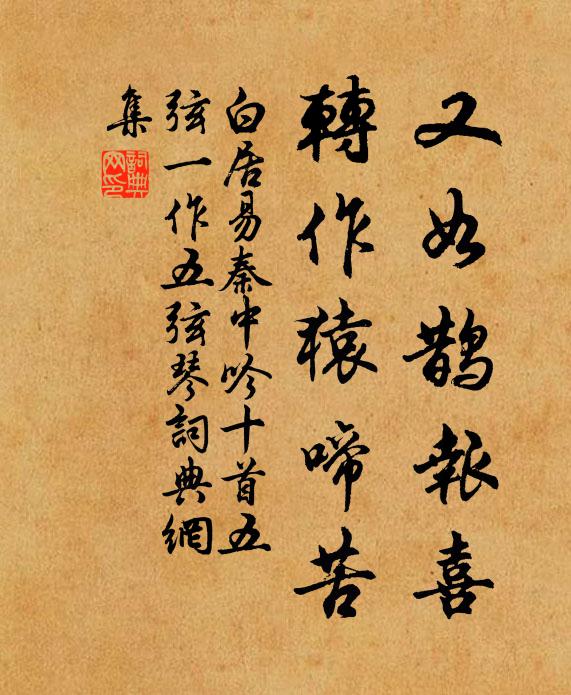 又如鵲報喜
轉作猿啼苦
白居易秦中吟十首五
弦一作五弦琴詞典網
集
詞典
网印